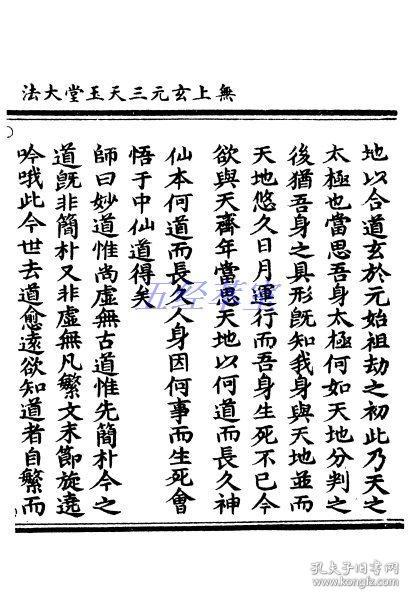 無上玄元三天玉堂大法
地以合道玄於元始祖劫之初此乃天之
太極也當思吾身太極何如天地分判之
後猶吾身之具形旣知我身與天地並而
天地悠久日月運行而吾身生死不已今
欲與天齊年當思天地以何道而長久神
仙本何道而長久人身因何事而生死會
悟于中仙道得矣
師曰妙道惟尚虛無古道惟先簡朴今之
道旣非簡朴又非虛無凡繁文末節旋遶
吟哦此今世去道愈遠欲知道者自繁而
五经萃室
孔夫子旧书网